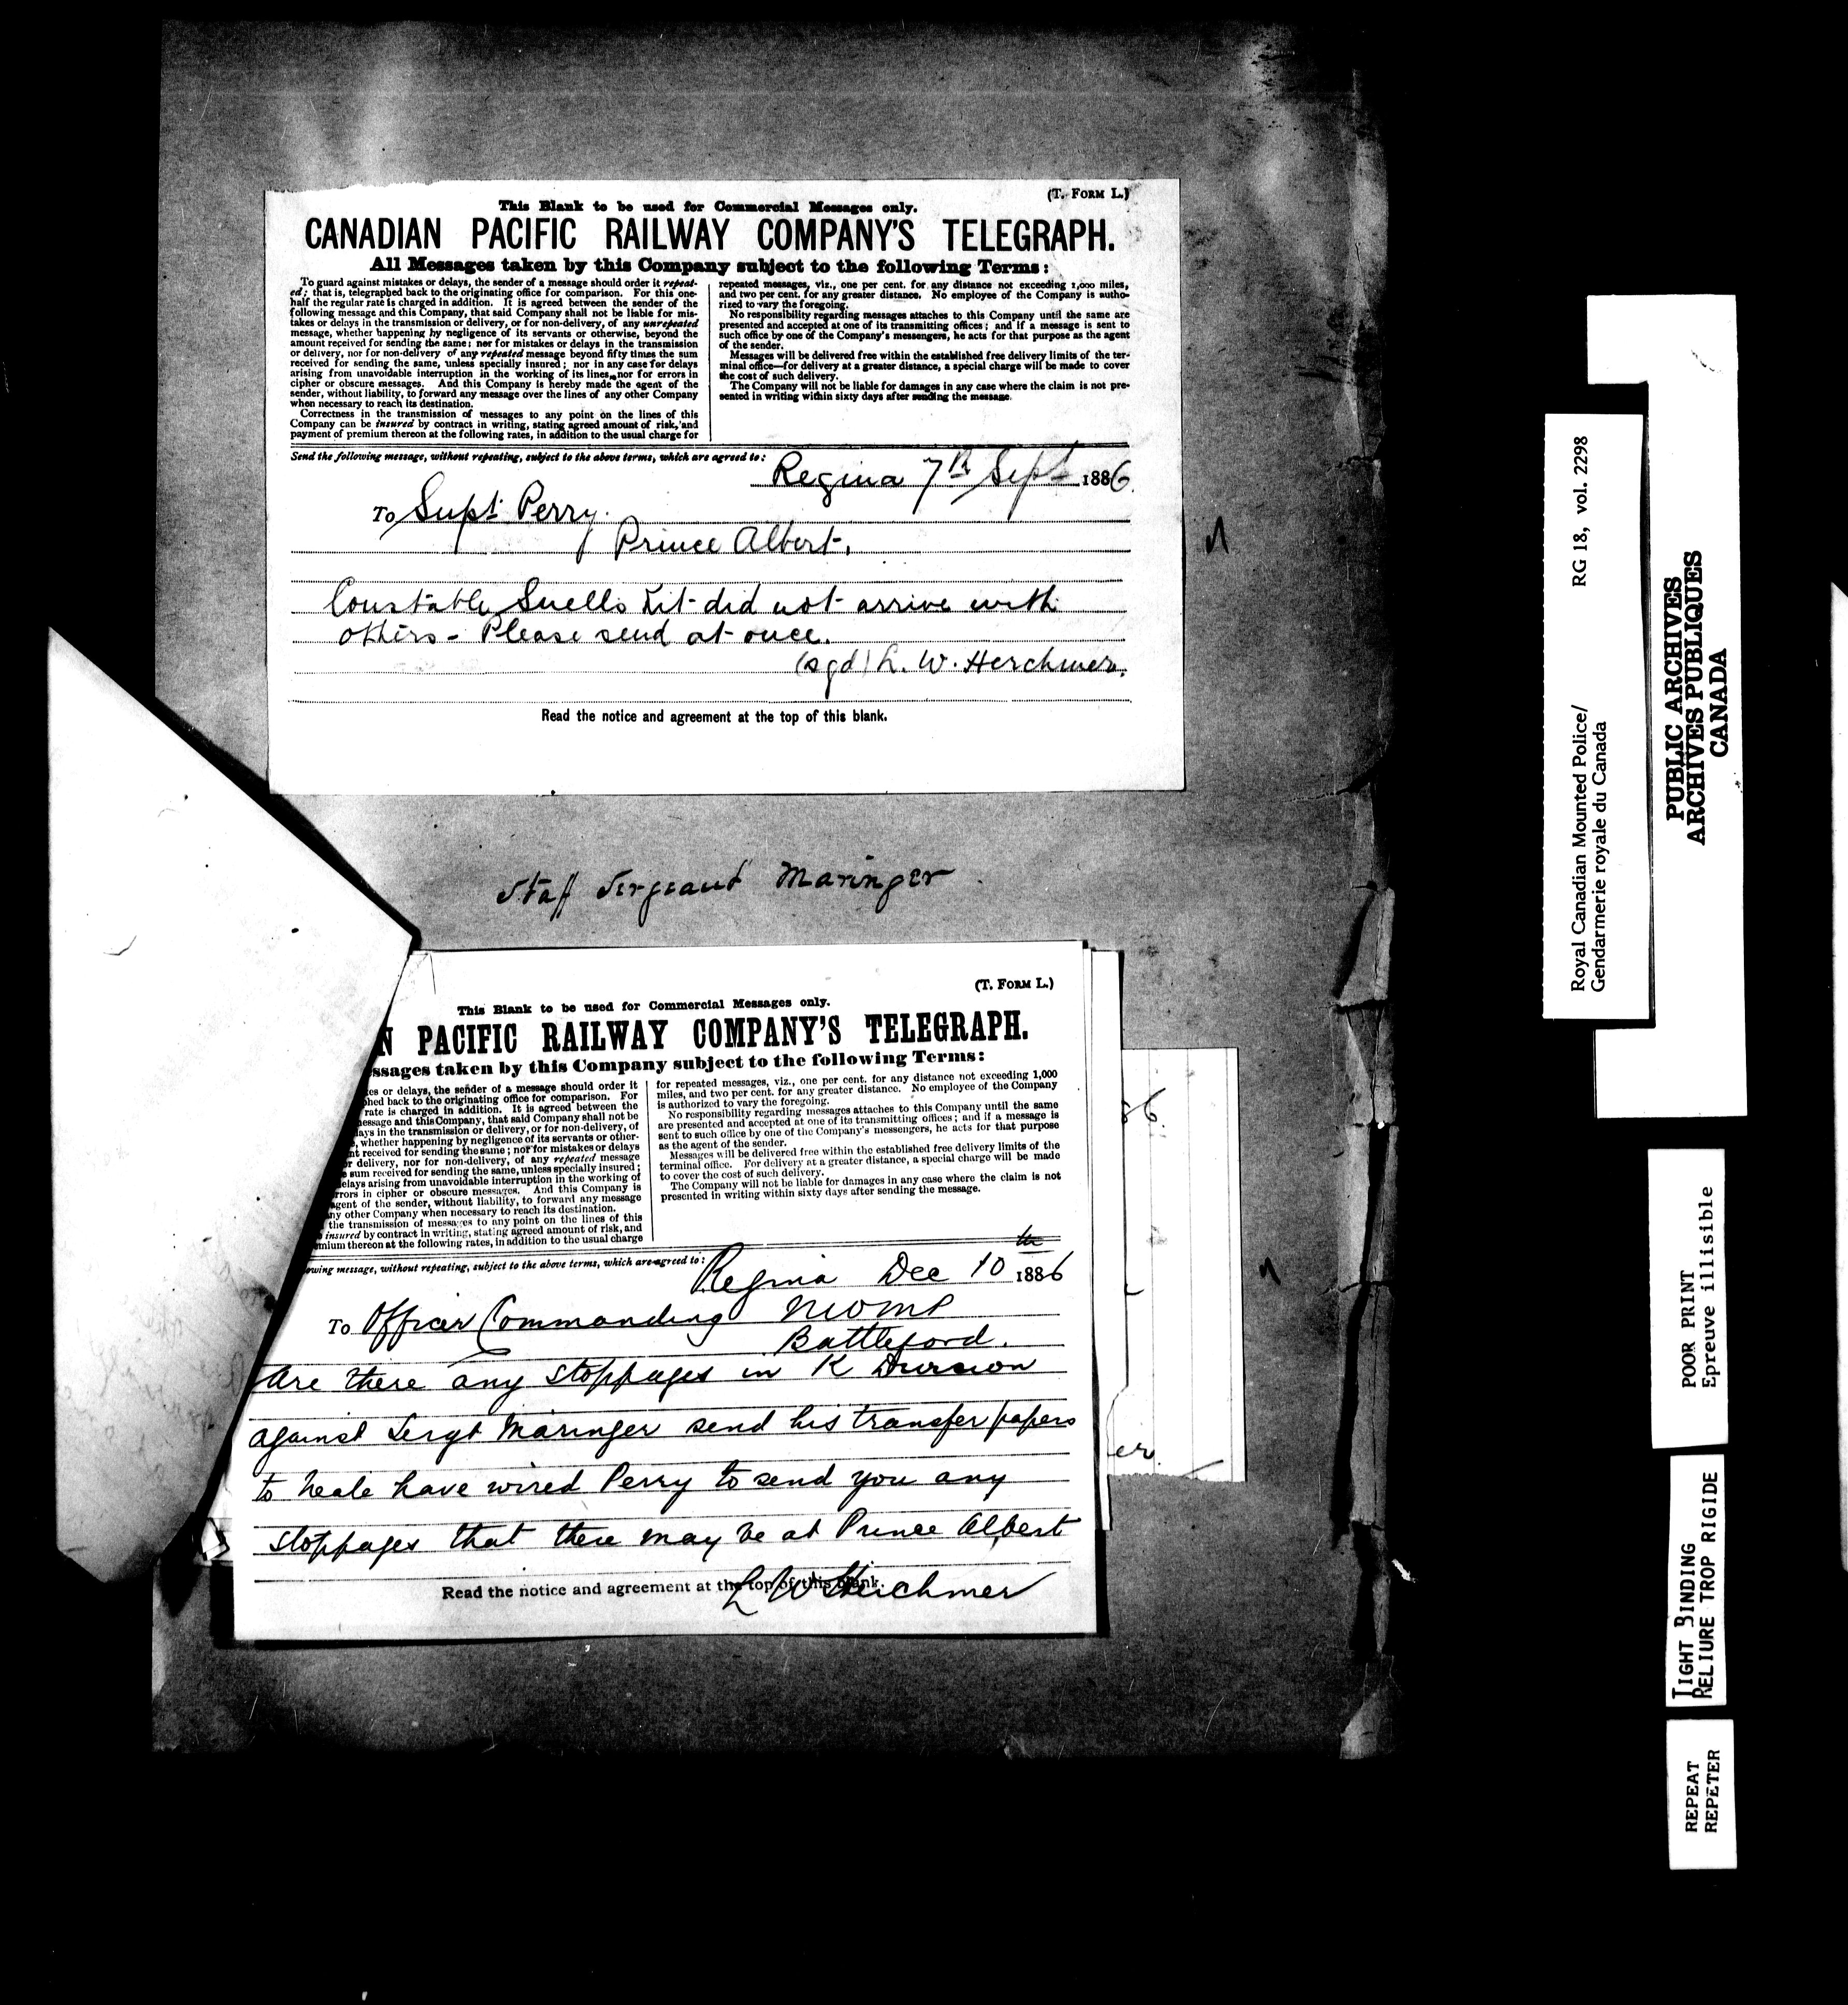 (T. FORM L.)
This Blank to be used for Commercial Messages only.
CANADIAN PACIFIC RAILWAY COMPANY'S TELEGRAPH.
All Messages taken by this Company subject to the following Terms:
To guard against mistakes or delays, the sender of a message should order it repeat-
ed; that is, telegraphed back to the originating office for comparison. For this one-
half the regular rate is charged in addition. It is agreed between the sender of the
following message and this Company, that said Company shall not be liable for mis-
takes or delays in the transmission or delivery, or for non-delivery, of any unrepeated
message, whether happening by negligence of its servants or otherwise, beyond the
amount received for sending the same; nor for mistakes or delays in the transmission
or delivery, nor for non-delivery of any repeated message beyond fifty times the sum
received for sending the same, unless specially insured; nor in any case for delays
arising from unavoidable interruption in the working of its lines, nor for errors in
cipher or obscure messages. And this Company is hereby made the agent of the
sender, without liability, to forward any message over the lines of any other Company
when necessary to reach its destination.
Correctness in the transmission of messages to any point on the lines of this
Company can be insured by contract in writing, stating agreed amount of risk, and
payment of premium thereon at the following rates, in addition to the usual charge for
repeated messages, viz., one per cent. for any distance not exceeding 1,000 miles,
and two per cent. for any greater distance. No employee of the Company is autho-
rized to vary the foregoing.
No responsibility regarding messages attaches to this Company until the same are
presented and accepted at one of its transmitting offices; and if a message is sent to
such office by one of the Company's messengers, he acts for that purpose as the agent
of the sender.
Messages will be delivered free within the established free delivery limits of the ter-
minal office—for delivery at a greater distance, a special charge will be made to cover
the cost of such delivery.
The Company will not be liable for damages in any case where the claim is not pre-
sented in writing within sixty days after sending the message.
Send the following message, without repeating, subject to the above terms, which are agreed to:
Regina 7th Sept 1886.
To Supt Perry.
Prince Albert.
Constable Snells Kit did not arrive with
others - Please send at once.
(sgd) L. W. Herchmer.
Read the notice and agreement at the top of this blank.
Staff Sergeant Maringer
(T. FORM L.)
This Blank to be used for Commercial Messages only.
N PACIFIC RAILWAY COMPANY'S TELEGRAPH.
ssages taken by this Company subject to the following Terms:
es or delays, the sender of a message should order it
hed back to the originating office for comparison. For
rate is charged in addition. It is agreed between the
essage and this Company, that said Company shall not be
ays in the transmission or delivery, or for non-delivery, of
e, whether happening by negligence of its servants or other-
nt received for sending the same; nor for mistakes or delays
r delivery, nor for non-delivery, of any repeated message
e sum received for sending the same, unless specially insured;
elays arising from unavoidable interruption in the working of
rrors in cipher or obscure messages. And this Company is
gent of the sender, without liability, to forward any message
ny other Company when necessary to reach its destination.
the transmission of messages to any point on the lines of this
insured by contract in writing, stating agreed amount of risk, and
mium thereon at the following rates, in addition to the usual charge
for repeated messages, viz., one per cent. for any distance not exceeding 1,000
miles, and two per cent. for any greater distance. No employee of the Company
is authorized to vary the foregoing.
No responsibility regarding messages attaches to this Company until the same
are presented and accepted at one of its transmitting offices; and if a message is
sent to such office by one of the Company's messengers, he acts for that purpose
as the agent of the sender.
Messages will be delivered free within the established free delivery limits of the
terminal office. For delivery at a greater distance, a special charge will be made
to cover the cost of such delivery.
The Company will not be liable for damages in any case where the claim is not
presented in writing within sixty days after sending the message.
owing message, without repeating, subject to the above terms, which are agreed to:
Regina Dec 10th 1886
To Officer Commanding NWMP
Battleford.
Are there any stoppages in K Division
against Sergt Maringer send his transfer papers
to Neale have wired Perry to send you any
stoppages that there may be at Prince Albert
Read the notice and agreement at the top of this blank.
L W Herchmer
er.
Royal Canadian Mounted Police/
Gendarmerie royale du Canada
RG 18, vol. 2298
PUBLIC ARCHIVES
ARCHIVES PUBLIQUES
CANADA
POOR PRINT
Epreuve illisible
TIGHT BINDING
RELIURE TROP RIGIDE
REPEAT
REPETER